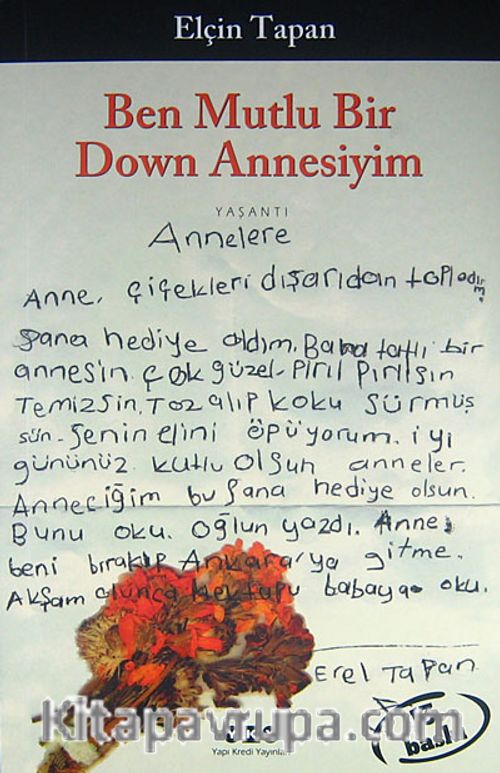 Elçin Tapan
Ben Mutlu Bir
Down Annesiyim
YAŞANTI
Annelere
Anne, çiçekleri dışarıdan topladım.
Şana hediye aldım. Bana tatlı bir
annesin. çok güzel-pırıl pırılsın
Temizsin. Toz alıp koku sürmüş
sün-Şenin elini öpüyorum. iyi
gününüz kutlu olsun anneler.
Anneciğim bu şana hediye olsun.
Bunu oku. oğlun yazdı. Anne,
beni bırakıp Ankara'ya gitme.
Akşam olunca mektupu babaya oku.
Erel Tapan
kitapavrupa.com
baskı
Yapı Kredi Yayınları